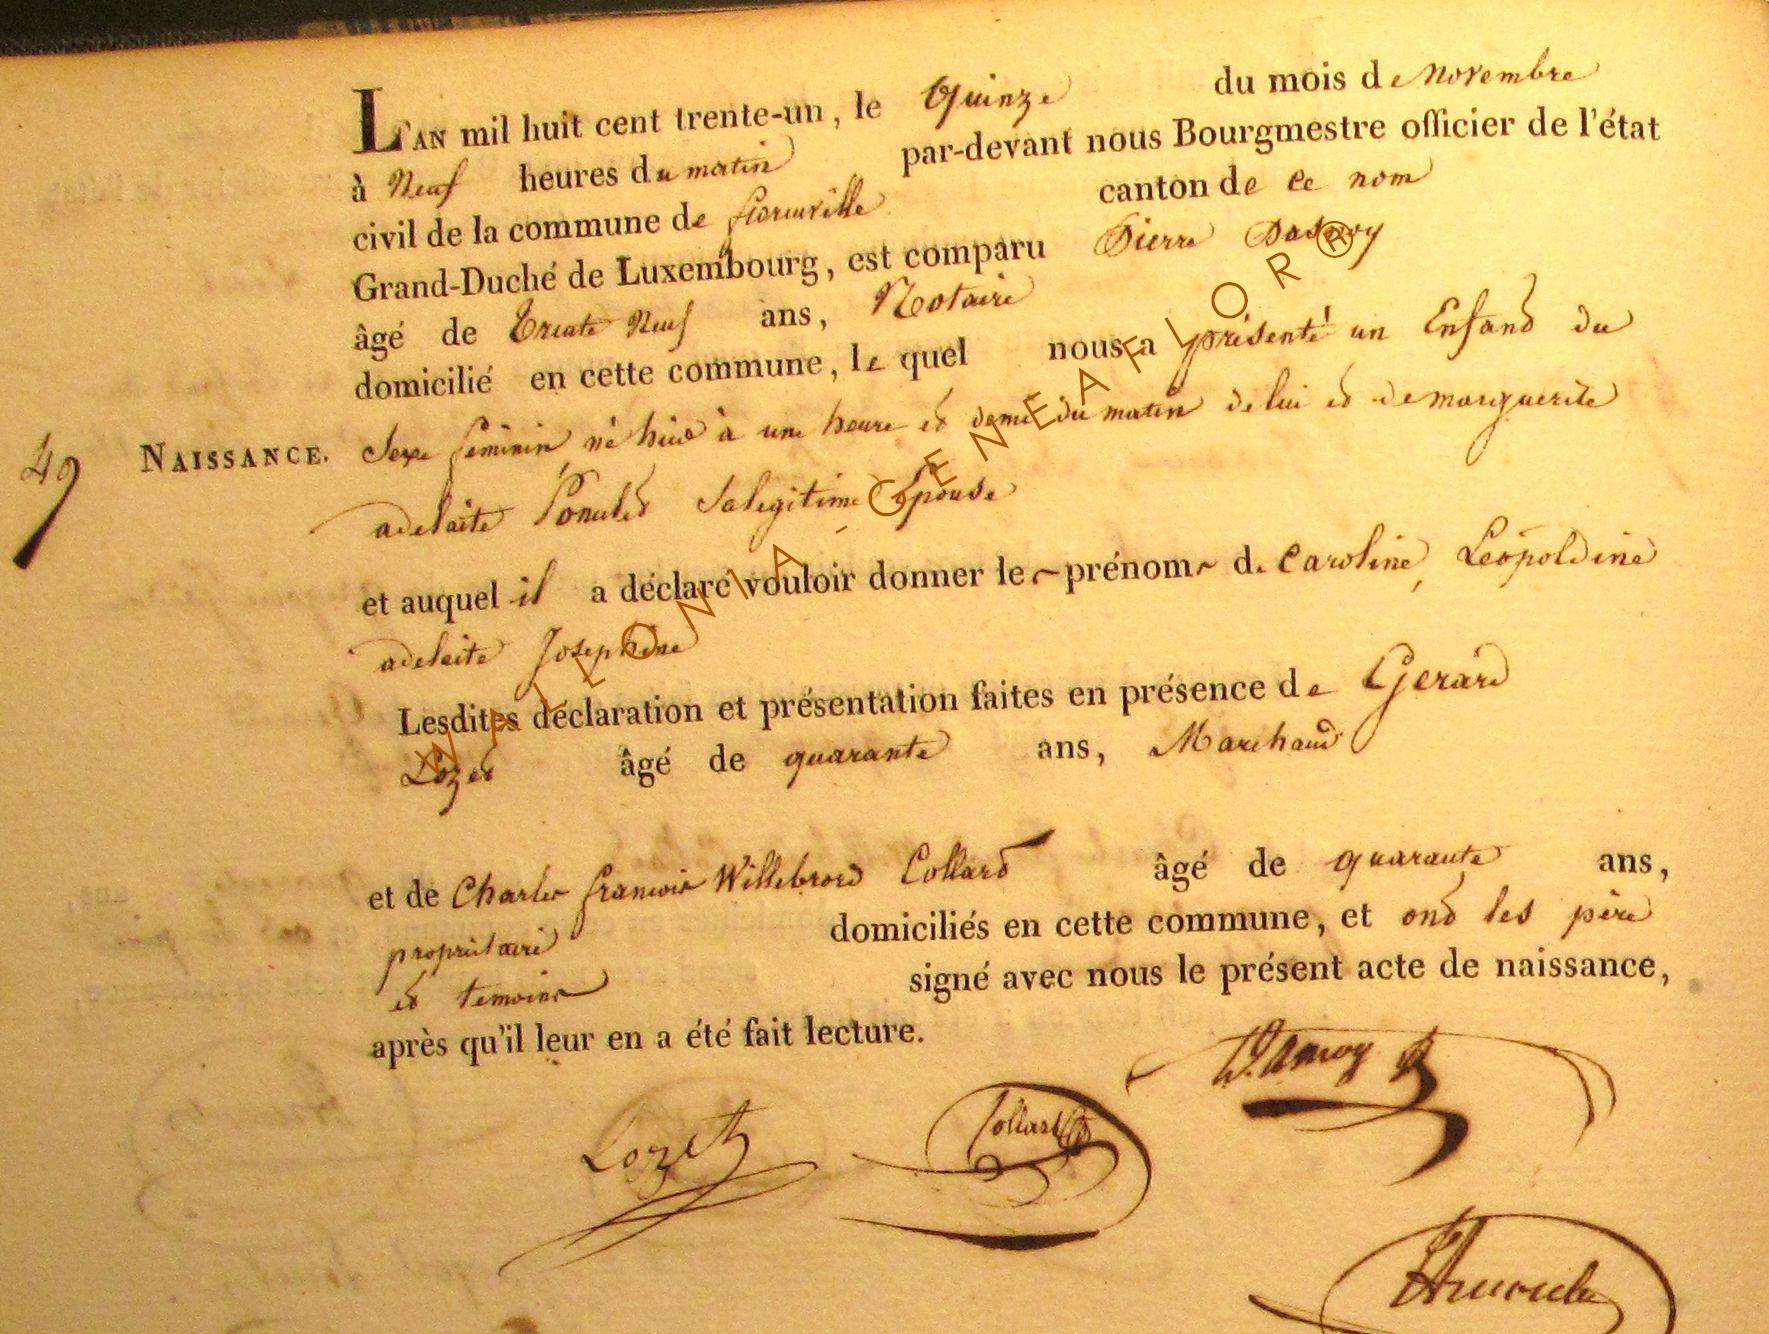 L'AN mil huit cent trente-un, le Quinze du mois de Novembre
à Neuf heures du matin par-devant nous Bourgmestre officier de l'état
civil de la commune de canton de ce nom
Grand-Duché de Luxembourg, est comparu Pierre Dasnoy
âgé de Trente Neuf ans, Notaire
domicilié en cette commune, le quel nous a présenté un Enfant du
49 NAISSANCE. Sexe féminin né hier à une heure et demi du matin de lui et de marguerite
adelaite Sa legitime Epouse
et auquel il a déclaré vouloir donner le prénom de Caroline, Leopoldine
adelaite Josephine
Lesdites déclaration et présentation faites en présence de Gerard
Lozet âgé de quarante ans, Marchand
et de Charles francois Willebrord Collard âgé de quarante ans,
propriétaire domiciliés en cette commune, et ont les père
et temoins signé avec nous le présent acte de naissance,
après qu'il leur en a été fait lecture.
Dasnoy
Lozet Collard
WALLONIA - GENEAFLOR®